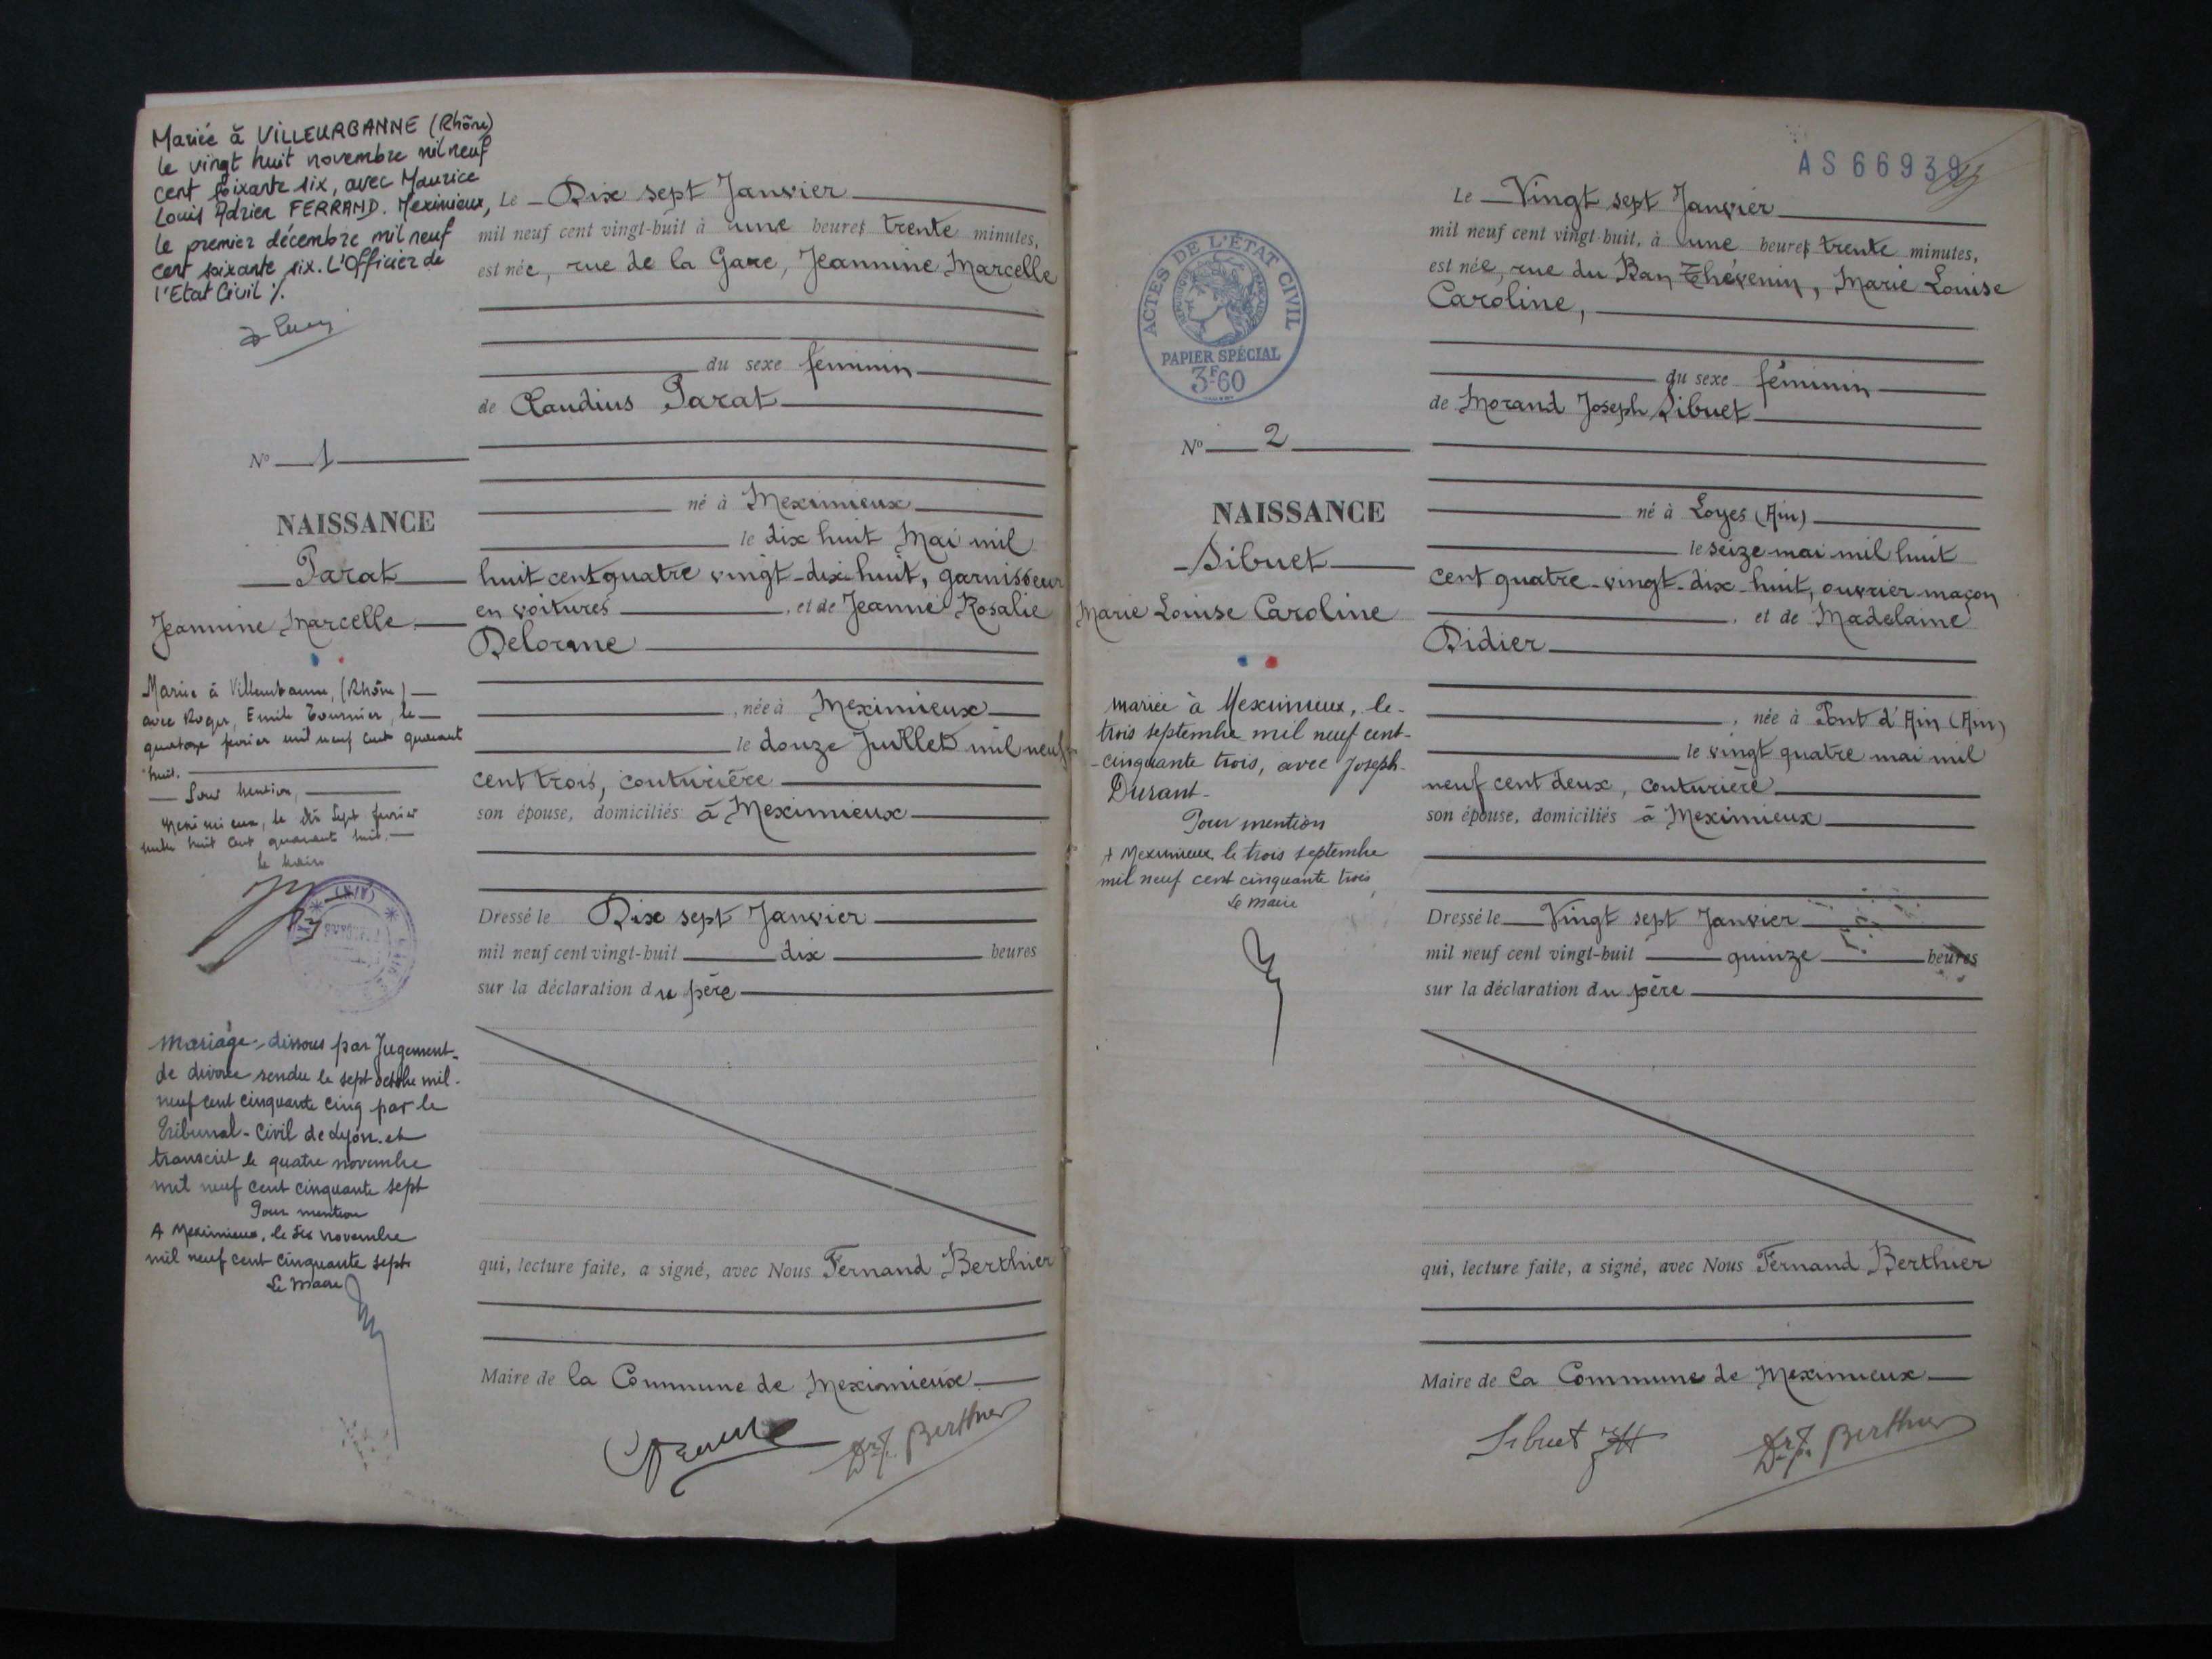 Mariée à VILLEURBANNE (Rhône)
le vingt huit novembre mil neuf
cent soixante six, avec Maurice
Louis Adrien FERRAND. Meximieux,
le premier décembre mil neuf
cent soixante six. L'Officier de
l'Etat Civil %.
N° 1
NAISSANCE
Parat
Jeannine Marcelle
Mariée à Villeurbanne, (Rhône)
avec Roger, Emile Tournier, le
quatorze février mil neuf cent quarante
huit.
Pour mention,
Meximieux, le dix sept février
cent quarante huit.
le Maire
(AIN)
Mariage dissous par Jugement
de divorce rendu le sept octobre mil
neuf cent cinquante cinq par le
Tribunal Civil de Lyon et
transcrit le quatre novembre
mil neuf cent cinquante sept
Pour mention
A Meximieux, le six novembre
mil neuf cent cinquante sept
Le Maire
Le Dix sept Janvier
mil neuf cent vingt-huit à une heures trente minutes,
est née, rue de la Gare, Jeannine Marcelle
du sexe féminin
de Claudius Parat
né à Meximieux
le dix huit Mai mil
huit cent quatre vingt-dix huit, garnisseur
en voitures, et de Jeanne Rosalie
Delorme
, née à Meximieux
le douze Juillet mil neuf
cent trois, couturière
son épouse, domiciliés à Meximieux
Dressé le Dix sept Janvier
mil neuf cent vingt-huit dix heures
sur la déclaration du père
qui, lecture faite, a signé, avec Nous Fernand Berthier
Maire de la Commune de Meximieux
Dr F. Berthier
AS 66939
ACTES DE L'ÉTAT CIVIL
PAPIER SPÉCIAL
3F60
N° 2
NAISSANCE
Sibuet
Marie Louise Caroline
mariée à Meximieux, le
trois septembre mil neuf cent
cinquante trois, avec Joseph
Durant
Pour mention
A Meximieux le trois septembre
mil neuf cent cinquante trois
Le Maire
Le Vingt sept Janvier
mil neuf cent vingt-huit, à une heures trente minutes,
est née, rue du Ban Thévenin, Marie Louise
Caroline,
du sexe féminin
de Morand Joseph Sibuet
né à Loyes (Ain)
le seize mai mil huit
cent quatre-vingt-dix-huit, ouvrier maçon
, et de Madelaine
Didier
, née à Pont d'Ain (Ain)
le vingt quatre mai mil
neuf cent deux, couturière
son épouse, domiciliés à Meximieux
Dressé le Vingt sept Janvier
mil neuf cent vingt-huit quinze heures
sur la déclaration du père
qui, lecture faite, a signé, avec Nous Fernand Berthier
Maire de la Commune de Meximieux
Sibuet
Dr F. Berthier